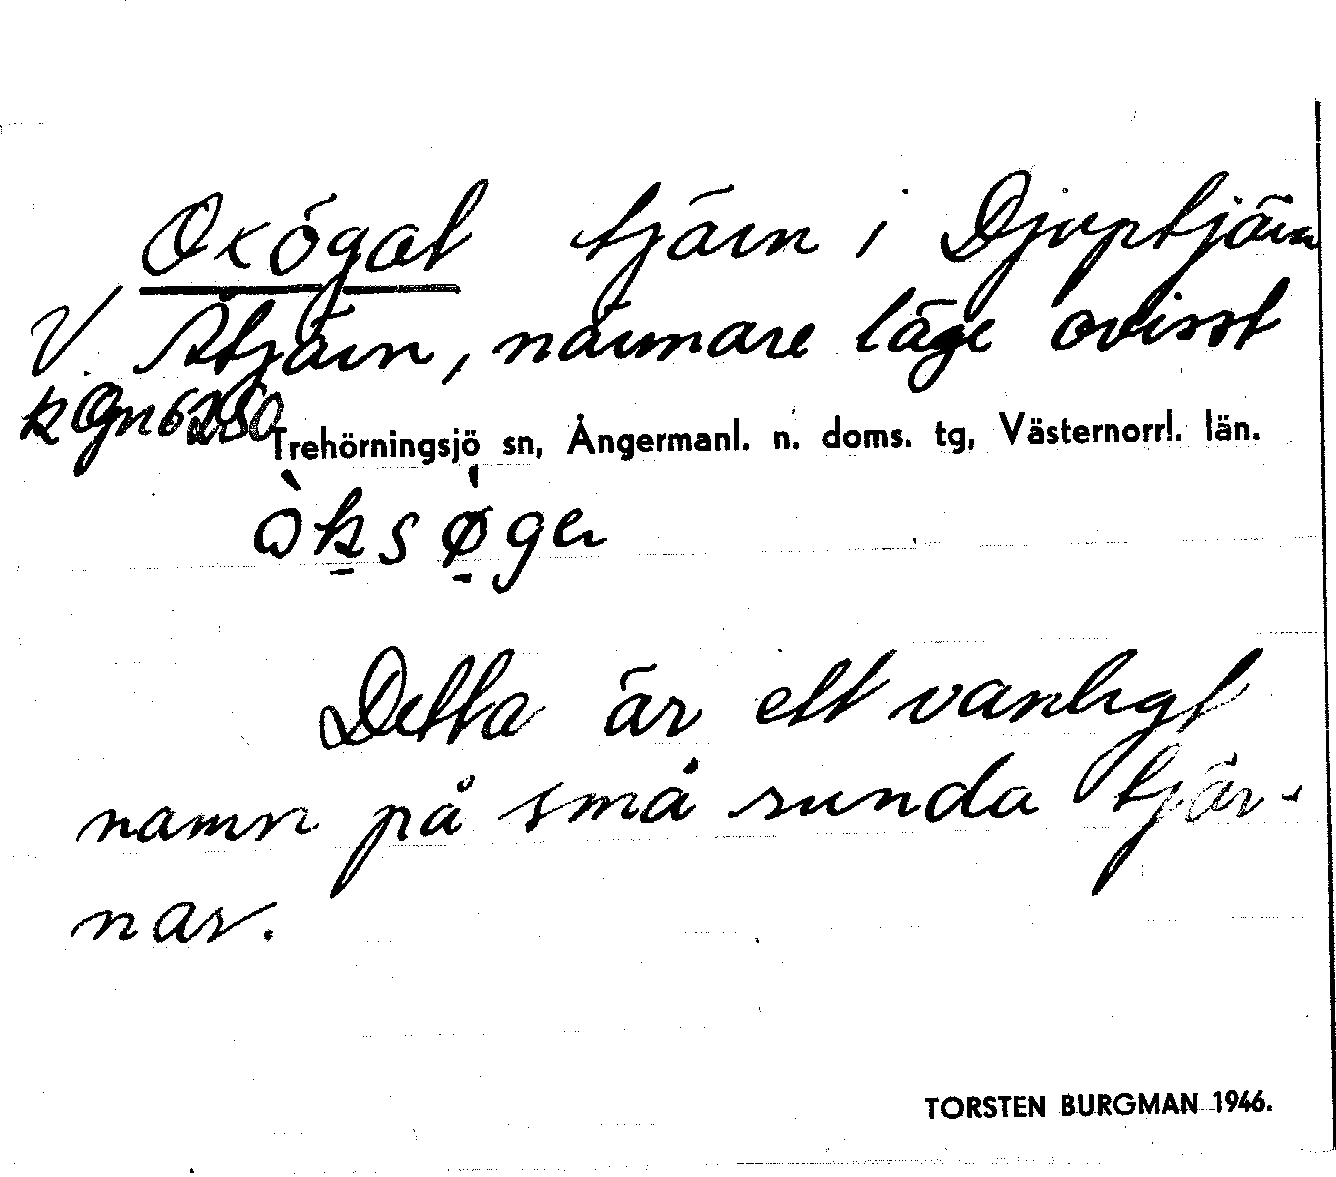 Oxögat tjärn i Djuptjärn
V. Åtjärn, närmare läge ovisst
Trehörningsjö sn, Ångermanl. n. doms. tg, Västernorrl. län.
Detta är ett vanligt
namn på små runda tjär-
nar.
TORSTEN BURGMAN 1946.